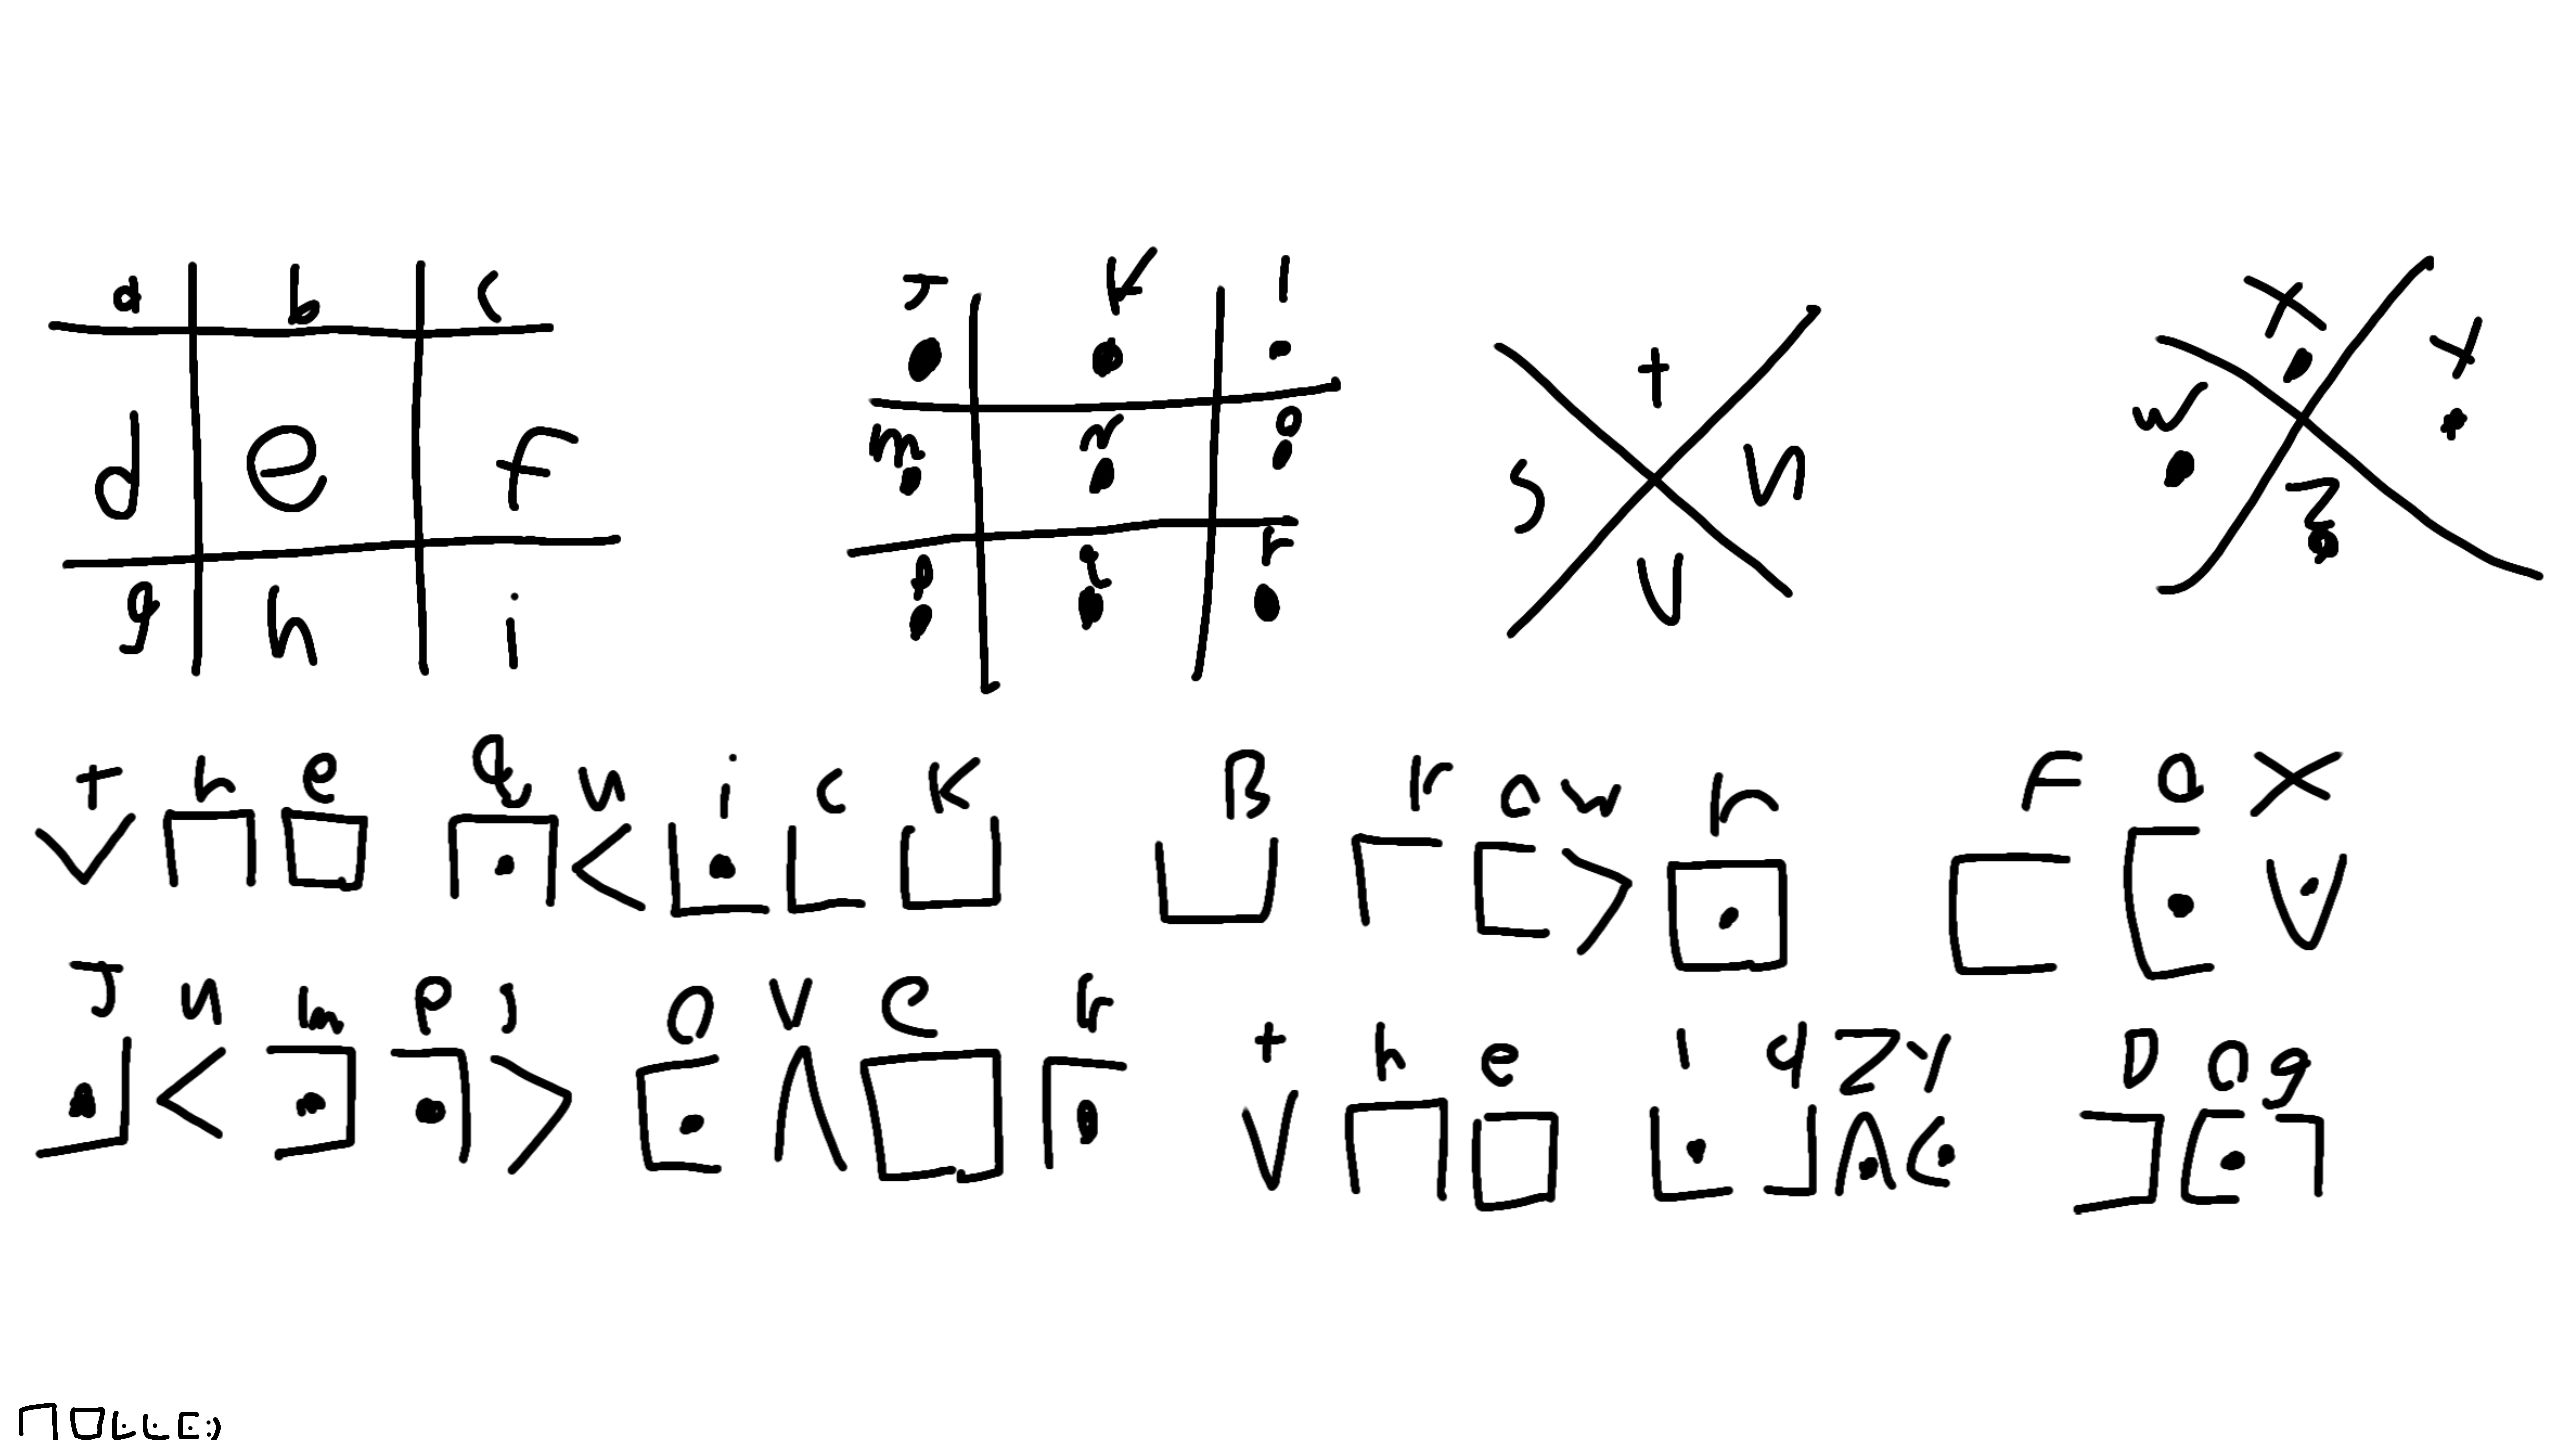 a b c
d e f
g h i
J K l
m n o
p q r
t
s u
v
x
w y
z
the quick Brown Fox
Jumps over the lazy Dog